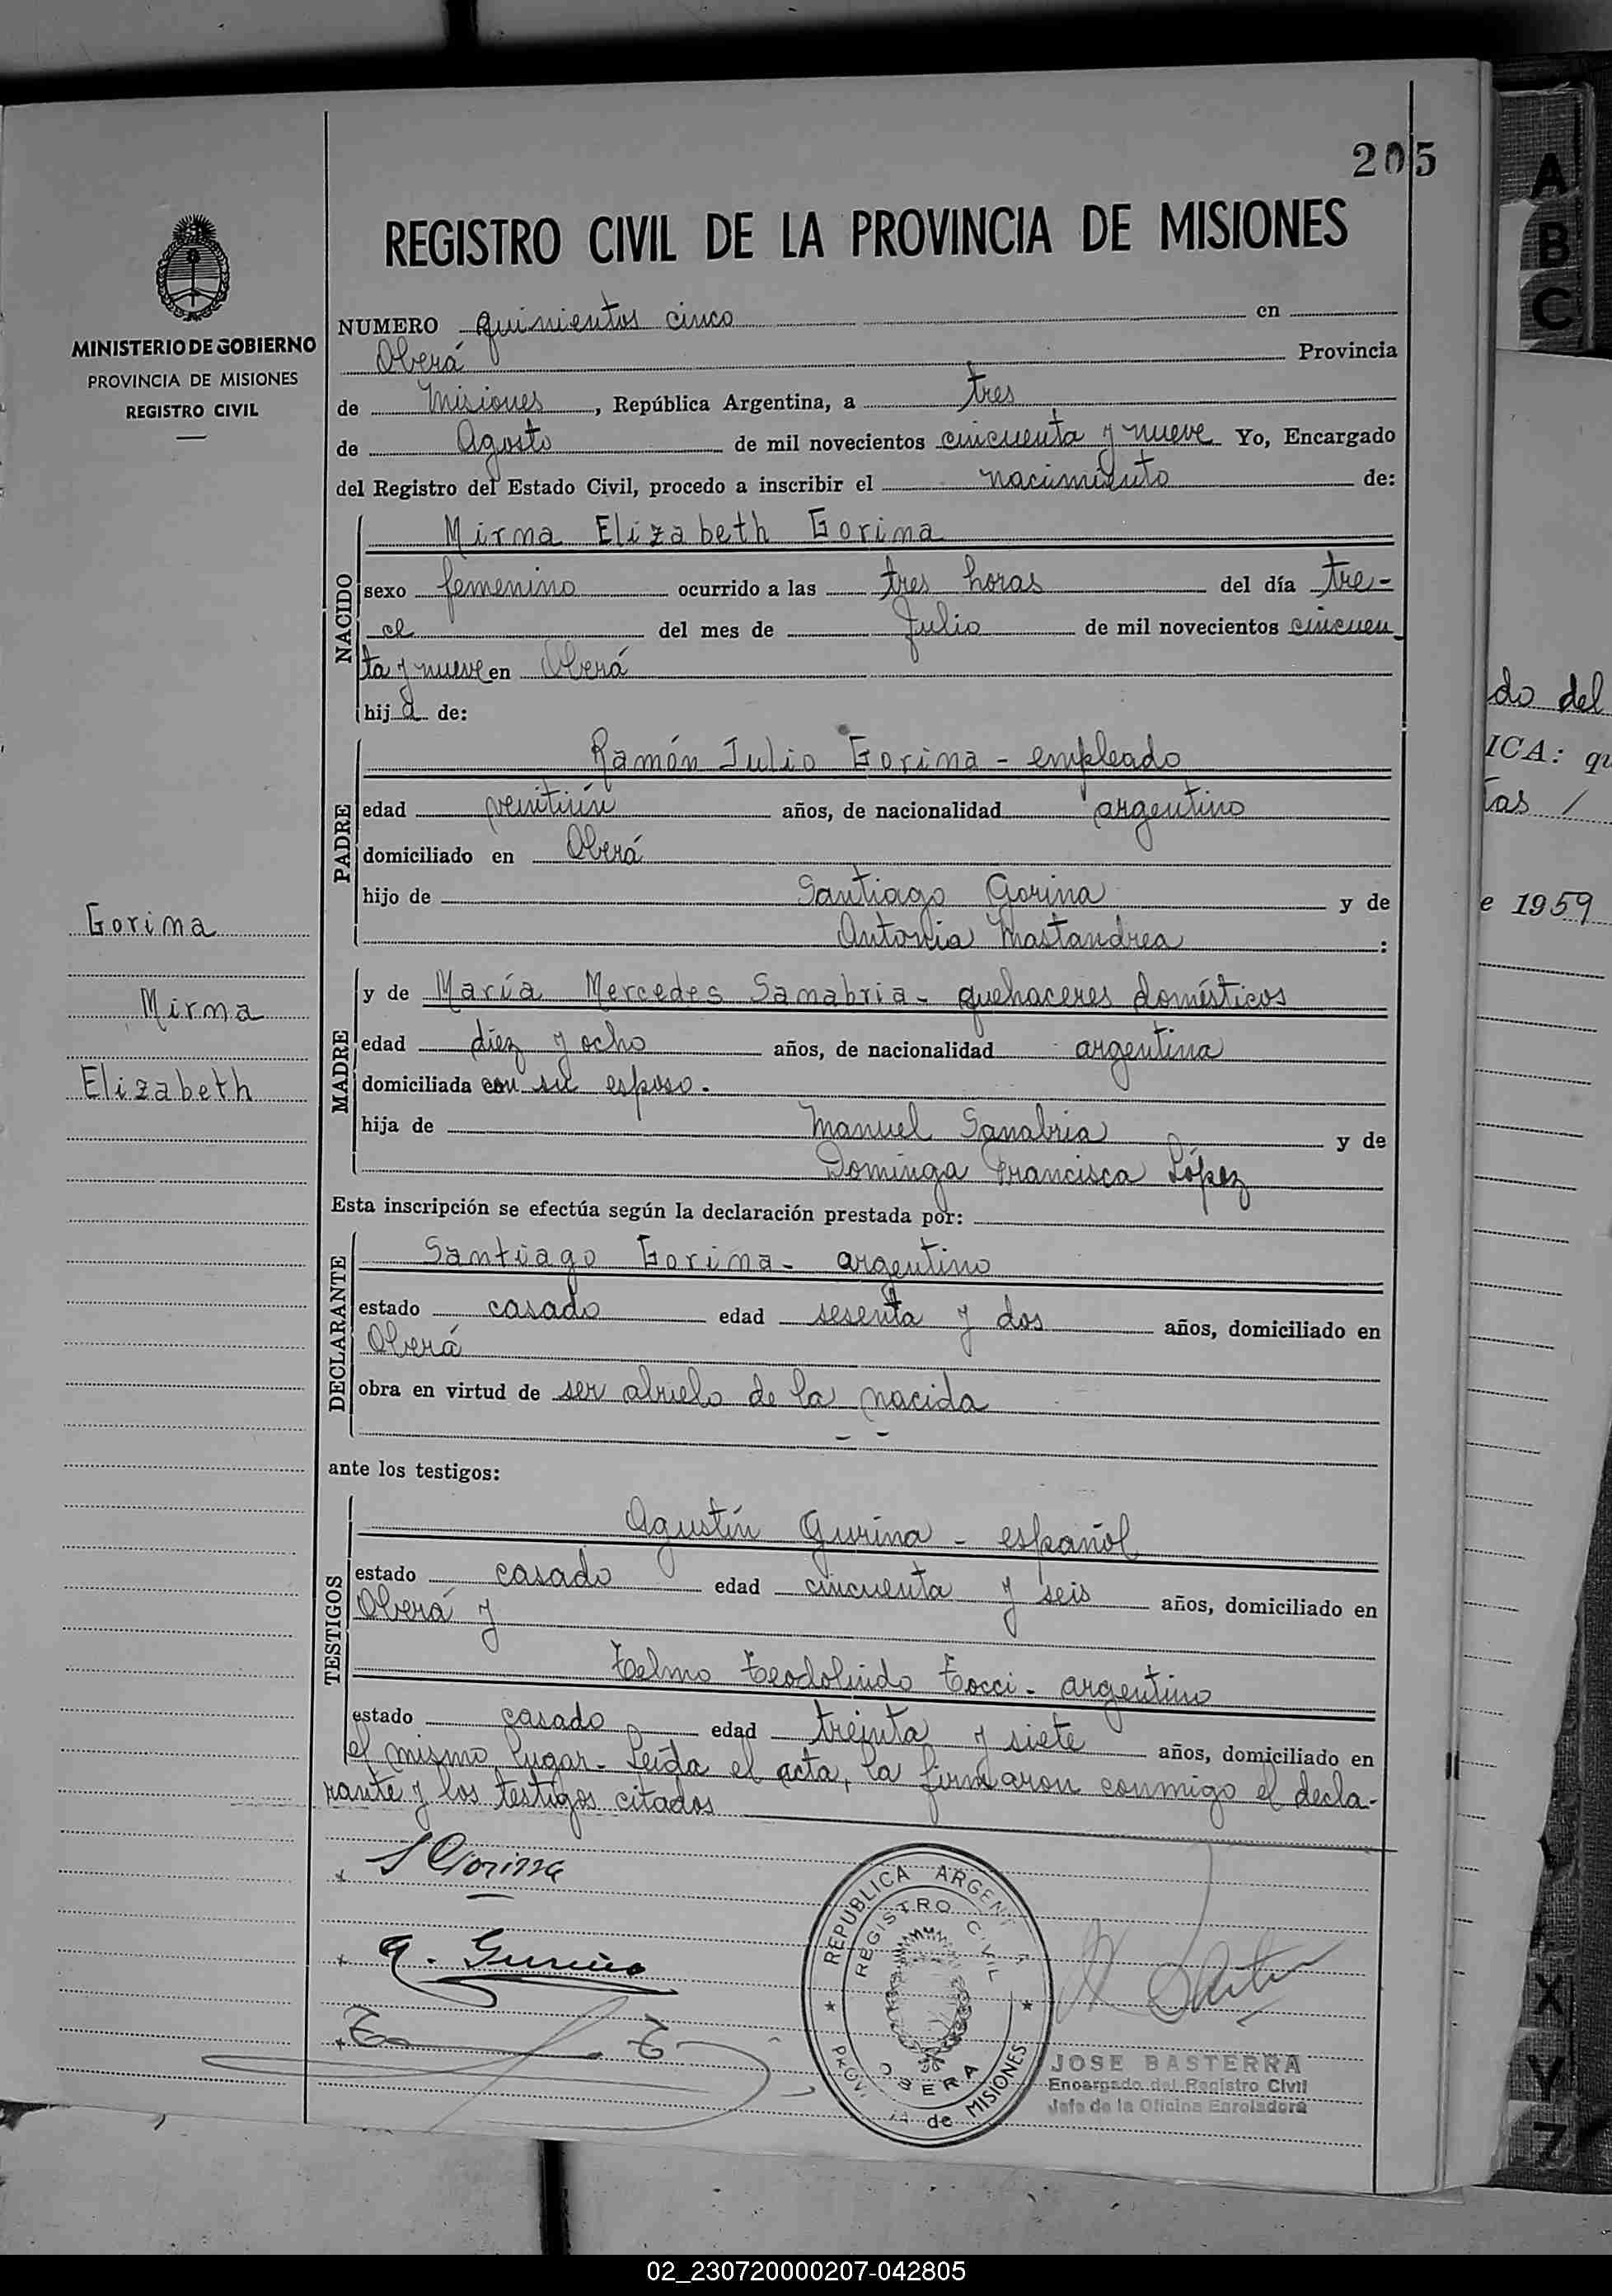 205
REGISTRO CIVIL DE LA PROVINCIA DE MISIONES
MINISTERIO DE GOBIERNO
PROVINCIA DE MISIONES
REGISTRO CIVIL
NUMERO quinientos cinco en
Oberá Provincia
de Misiones, República Argentina, a tres
de Agosto de mil novecientos cincuenta y nueve Yo, Encargado
del Registro del Estado Civil, procedo a inscribir el nacimiento de:
NACIDO
Mirma Elizabeth Gorina
sexo femenino ocurrido a las tres horas del día tre-
ce del mes de Julio de mil novecientos cincuen
ta y nueve en Oberá
hija de:
PADRE
Ramón Julio Gorina - empleado
edad veintiún años, de nacionalidad argentino
domiciliado en Oberá
hijo de Santiago Gorina y de
Antonia Mastandrea :
MADRE
y de María Mercedes Sanabria - quehaceres domésticos
edad diez y ocho años, de nacionalidad argentina
domiciliada con su esposo.
hija de Manuel Sanabria y de
Dominga Francisca López
Gorina
Mirma
Elizabeth
Esta inscripción se efectúa según la declaración prestada por:
DECLARANTE
Santiago Gorina - argentino
estado casado edad sesenta y dos años, domiciliado en
Oberá
obra en virtud de ser abuelo de la nacida
- -
ante los testigos:
TESTIGOS
Agustín Gurina - español
estado casado edad cincuenta y seis años, domiciliado en
Oberá y
Telmo Teodolindo Tocci - argentino
estado casado edad treinta y siete años, domiciliado en
el mismo lugar - Leída el acta, la firmaron conmigo el decla-
rante y los testigos citados
S Gorina
A. Gurina
REPUBLICA ARGENTINA
REGISTRO CIVIL
OBERA
PROVINCIA de MISIONES
JOSE BASTERRA
Encargado del Registro Civil
Jefe de la Oficina Enroladora
do del
ICA: qu
tas /
e 1959
A
B
C
X
Y
Z
02_230720000207-042805